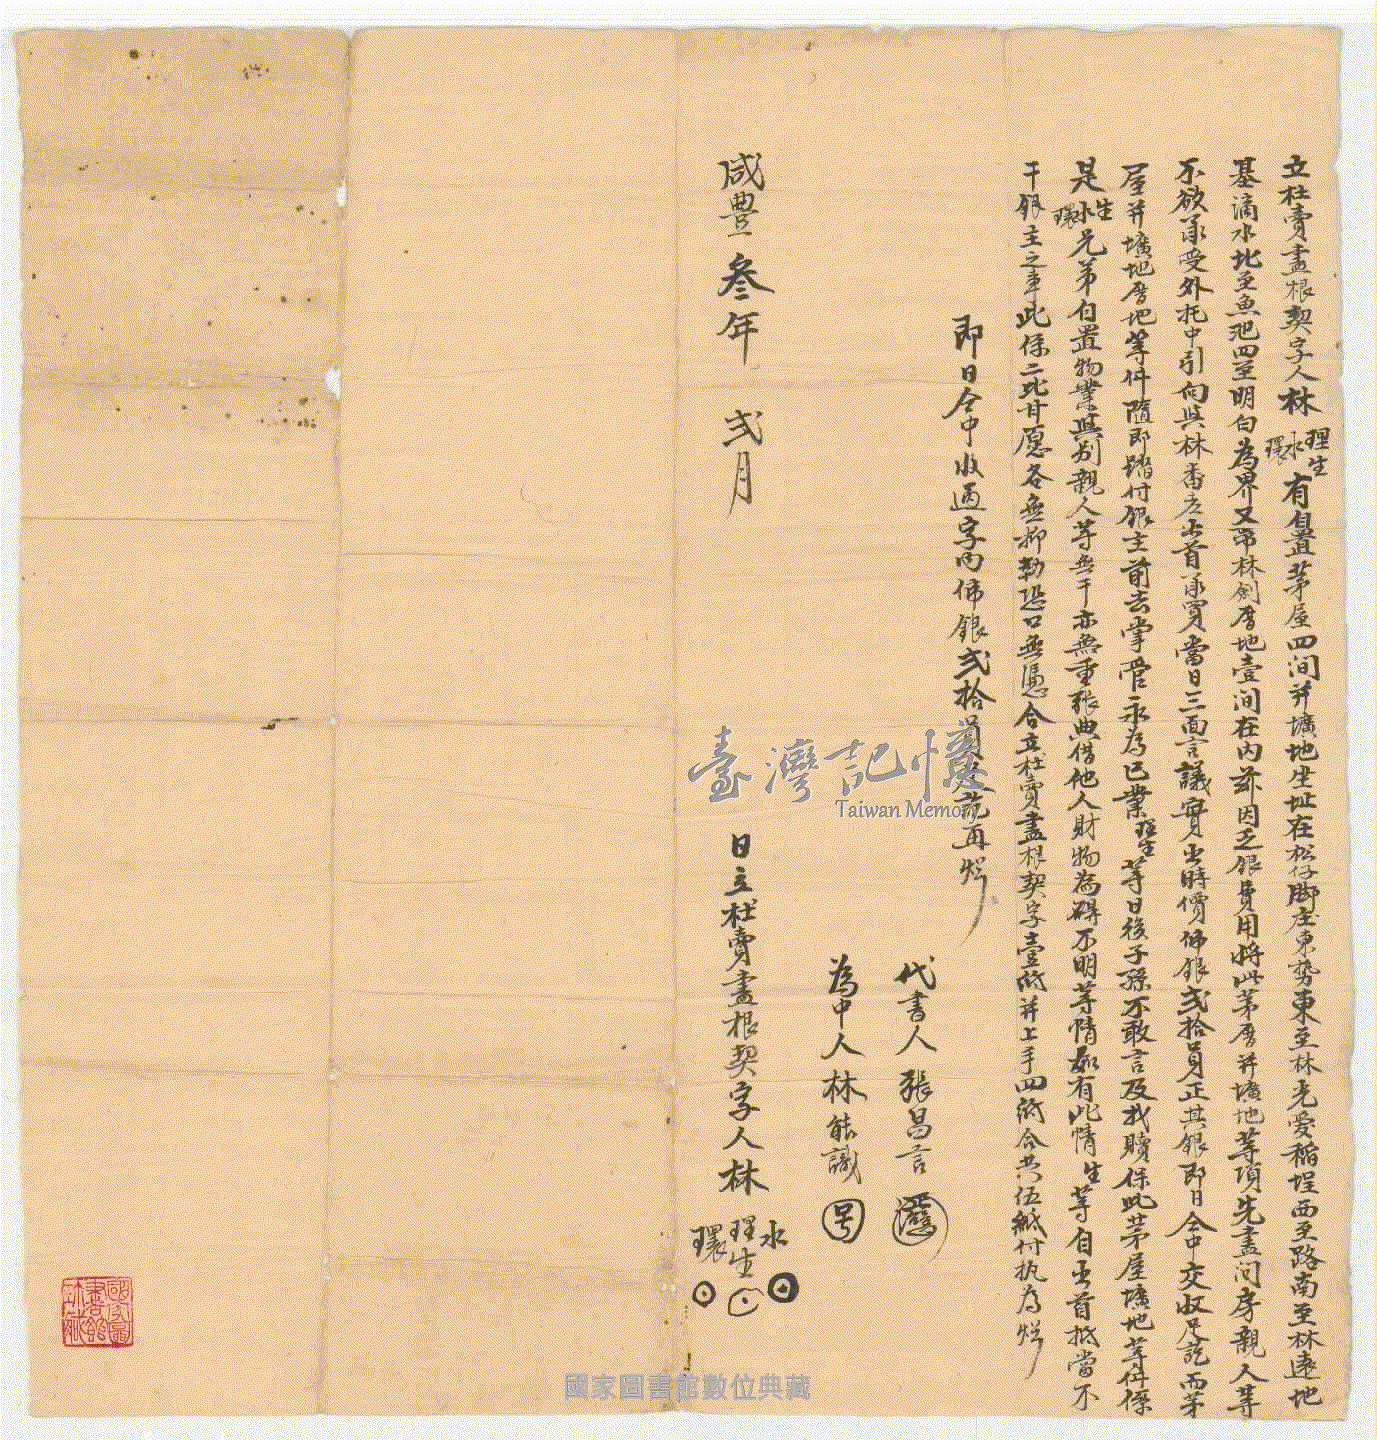 立杜賣盡根契字人林理生水環有自置茅屋四間并壙地坐址在松仔脚庄東勢東至林光愛稻埕西至路南至林遠地
基滴水北至魚池四至明白為界又帶林劍厝地壹間在內茲因乏銀費用將此茅厝并壙地等項先盡问房親人等
不欲承受外托中引向與林番立出首承買當日三面言議實出時價佛銀弍拾員正其銀即日仝中交收足訖而茅
屋并壙地厝地等件隨即踏付銀主前去掌管永為己業理生等日後子孫不敢言及找贖保此茅屋壙地等件係
是生水環兄弟自置物業與別親人等無干亦無重張典借他人財物為碍不明等情如有此情生等自出首抵當不
干銀主之事此係二比甘愿各無抑勒恐口無憑合立杜賣盡根契字壹紙并上手四紙合共伍紙付执為炤
即日仝中收過字內佛銀弍拾員足訖再炤
代書人張昌言
為中人林能識 号
咸豐叁年 弍月 日立杜賣盡根契字人林水理生環
臺灣記憶
Taiwan Memory
國家圖書館數位典藏
國家圖書館珍藏